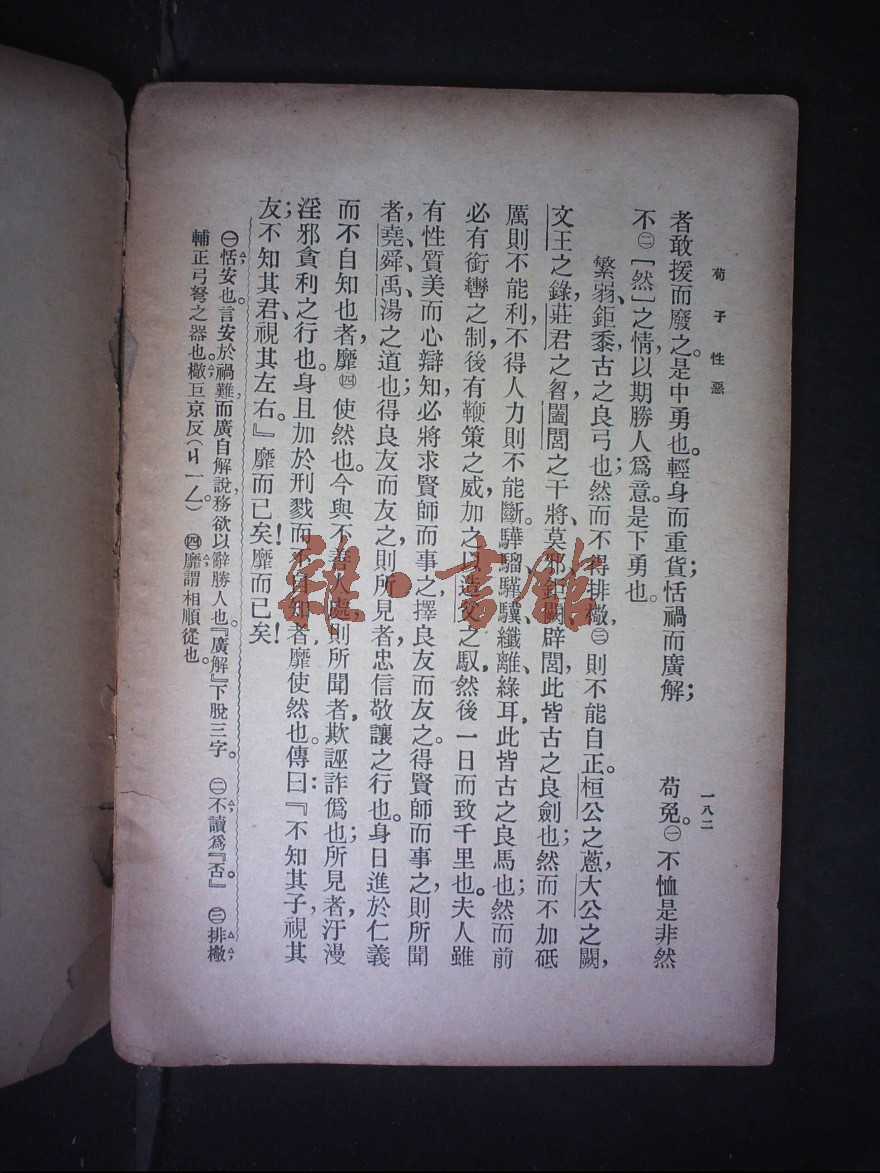 荀子性惡
一八二
者敢援而廢之。是中勇也。輕身而重貨；恬禍而廣解；　　苟免。㊀不恤是非然
不㊁〔然〕之情，以期勝人爲意。是下勇也。
繁弱、鉅黍，古之良弓也；然而不得排檠，㊂則不能自正。桓公之蔥，大公之闕，
文王之錄，莊君之曶，闔閭之干將、莫邪、鉅闕、辟閭，此皆古之良劍也；然而不加砥
厲則不能利，不得人力則不能斷。驊騮、騹驥、纖離、綠耳，此皆古之良馬也；然而前
必有銜轡之制，後有鞭策之威，加之以造父之馭，然後一日而致千里也。夫人雖
有性質美而心辯知，必將求賢師而事之，擇良友而友之。得賢師而事之，則所聞
者，堯、舜、禹、湯之道也；得良友而友之，則所見者忠信敬讓之行也。身日進於仁義
而不自知也者，靡㊃使然也。今與不善人處，則所聞者，欺誣詐僞也；所見者，汙漫
淫邪貪利之行也。身且加於刑戮而不自知者，靡使然也。傳曰：『不知其子，視其
友；不知其君，視其左右。』靡而已矣！靡而已矣！
㊀恬，安也。言安於禍難，而廣自解說，務欲以辭勝人也。『廣解』下脫三字。　㊁不讀爲『否』。　㊂排檠，
輔正弓弩之器也。檠巨京反（ㄐㄧㄥ）。　㊃靡，謂相順從也。
雜·書館